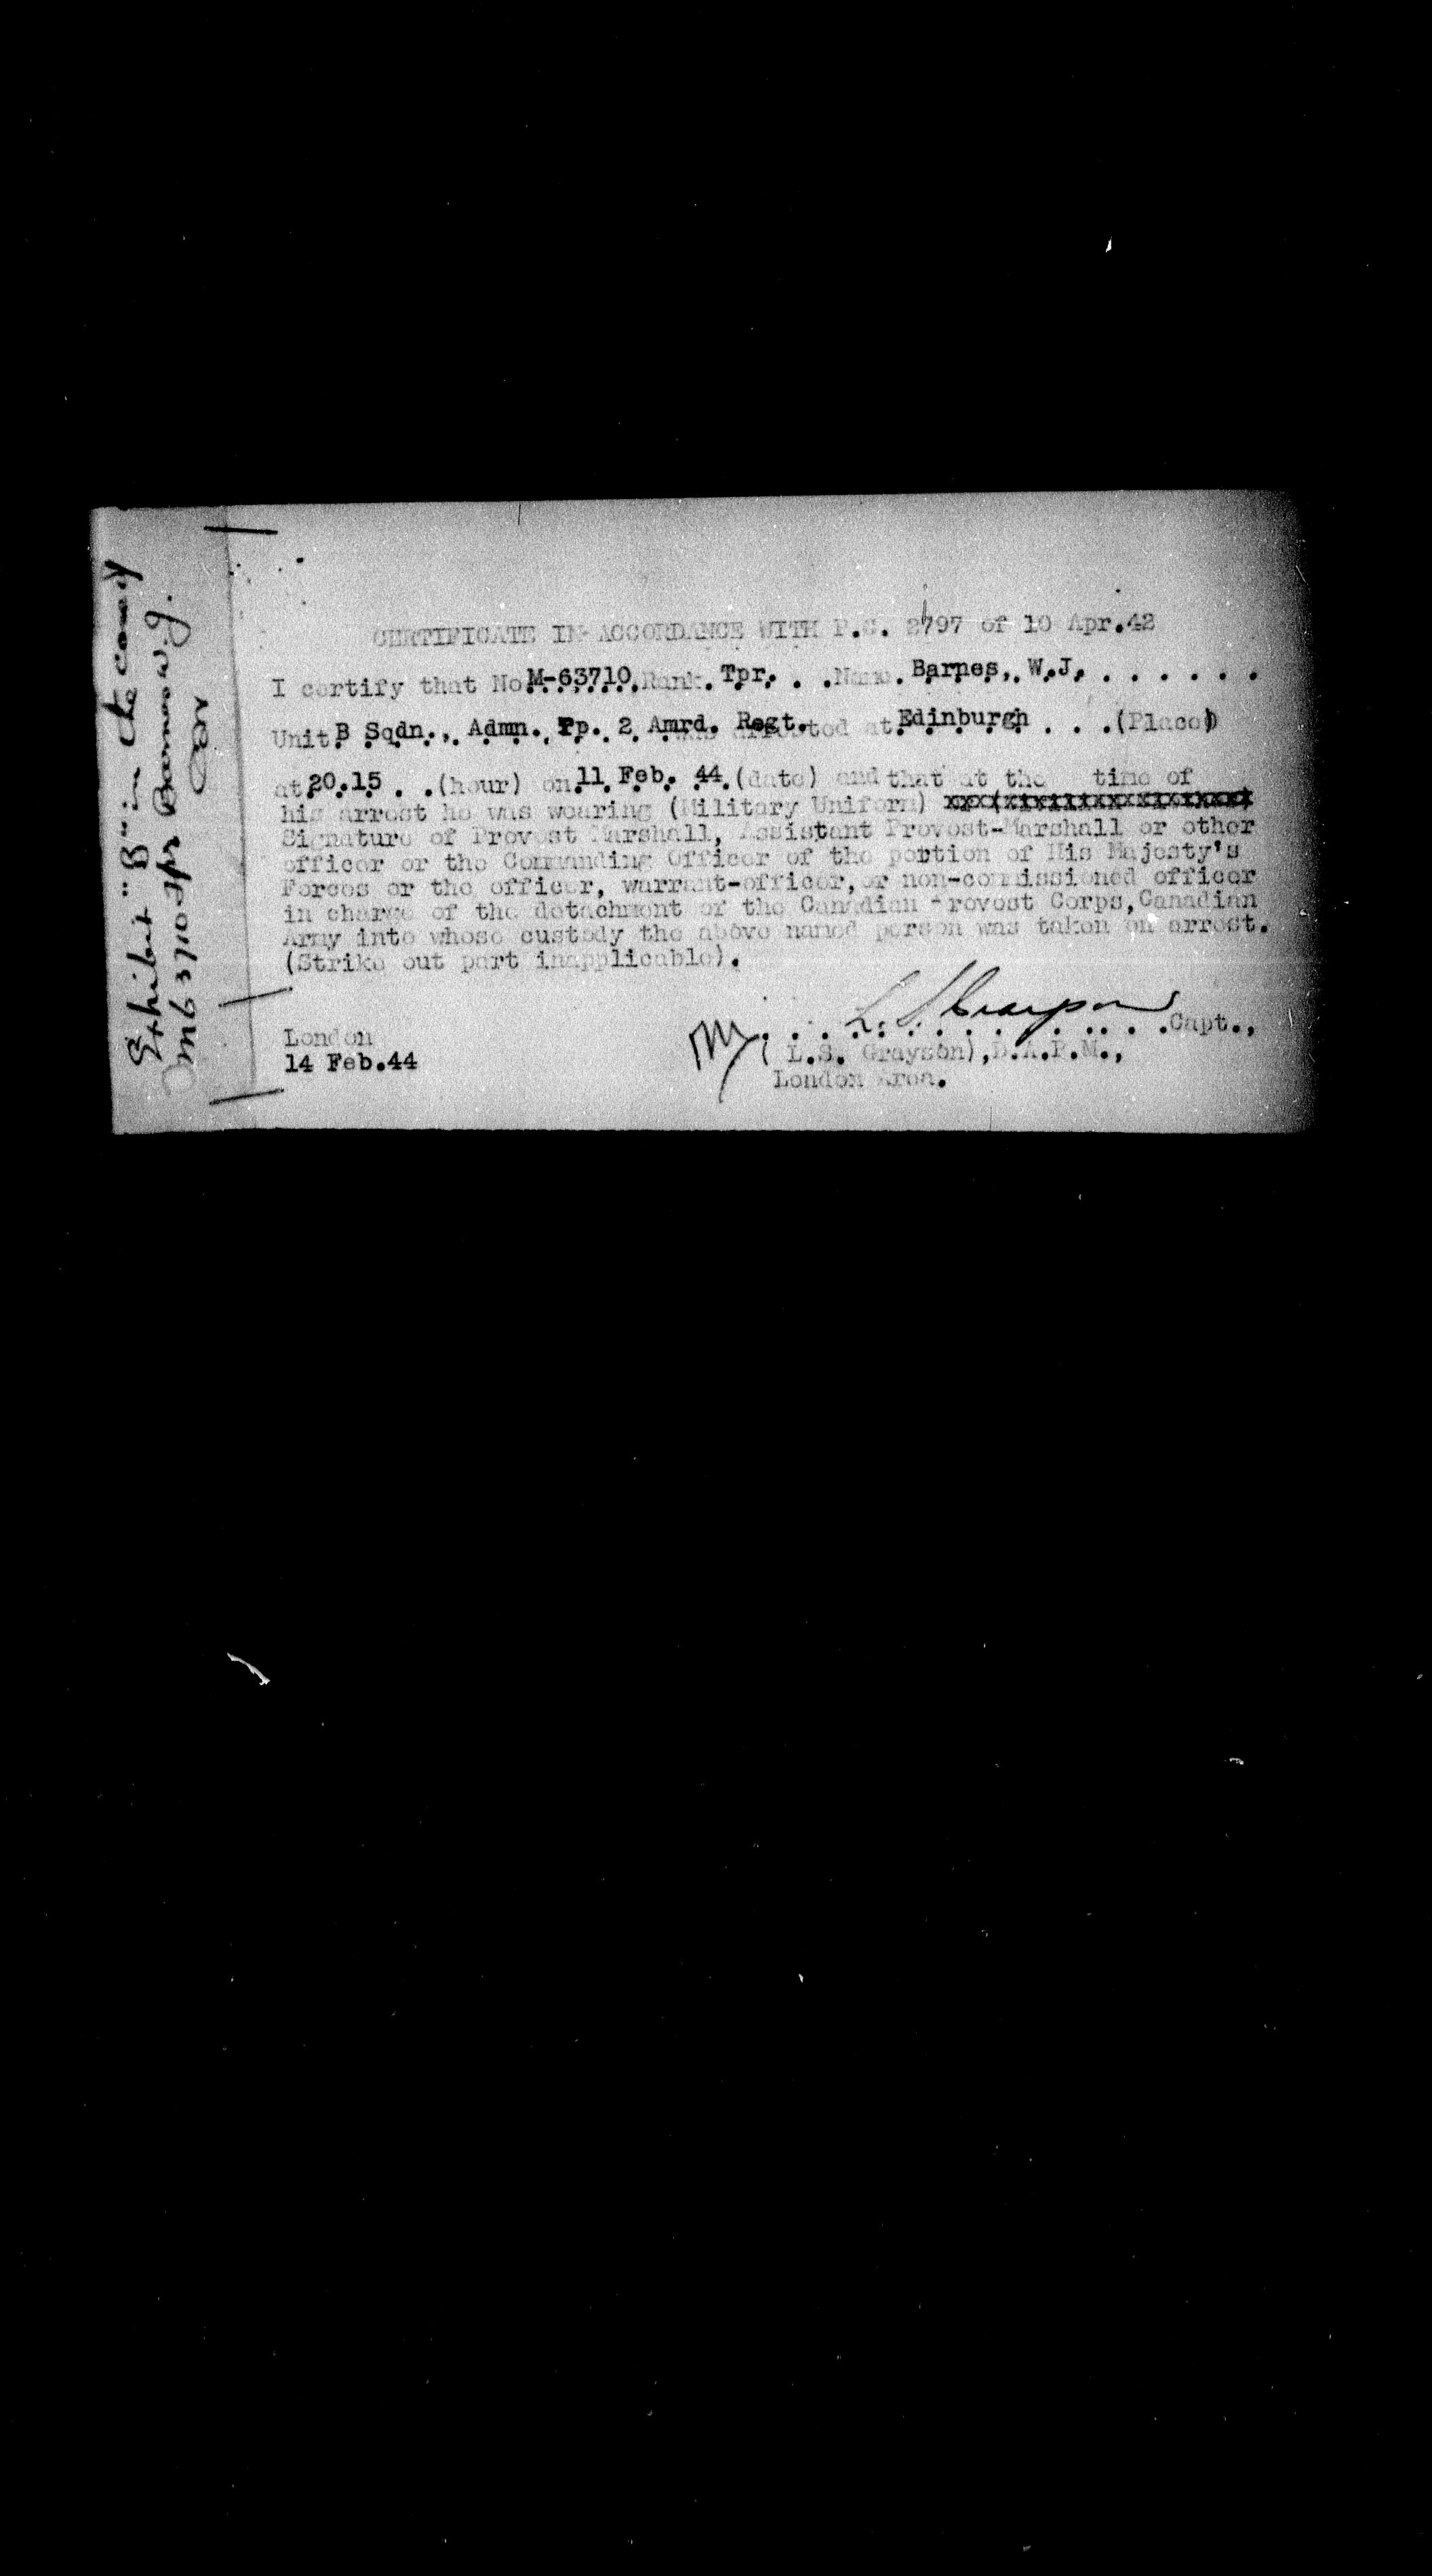 Exhibit "B" in the case of
M63710 Tpr Barnes W.J.
CERTIFICATE IN ACCORDANCE WITH P.C. 2797 of 10 Apr.42
I certify that No.M-63710.Rank.Tpr. . .Name.Barnes,.W.J. . . . . . .
Unit.B Sqdn., Admn. Tp. 2 Amrd. Regt. was arrested at.Edinburgh . . .(Place)
at.20.15. . .(hour) on.11 Feb. 44.(date) and that at the time of
his arrest he was wearing (Military Uniform)
Signature of Provost Marshall, Assistant Provost-Marshall or other
officer or the Commanding Officer of the portion of His Majesty's
Forces or the officer, warrant-officer, or non-commissioned officer
in charge of the detachment of the Canadian Provost Corps, Canadian
Army into whose custody the above named person was taken on arrest.
(Strike out part inapplicable).
London
14 Feb.44
L. S. Grayson Capt.,
( L.S. Grayson),D.A.P.M.,
London Area.